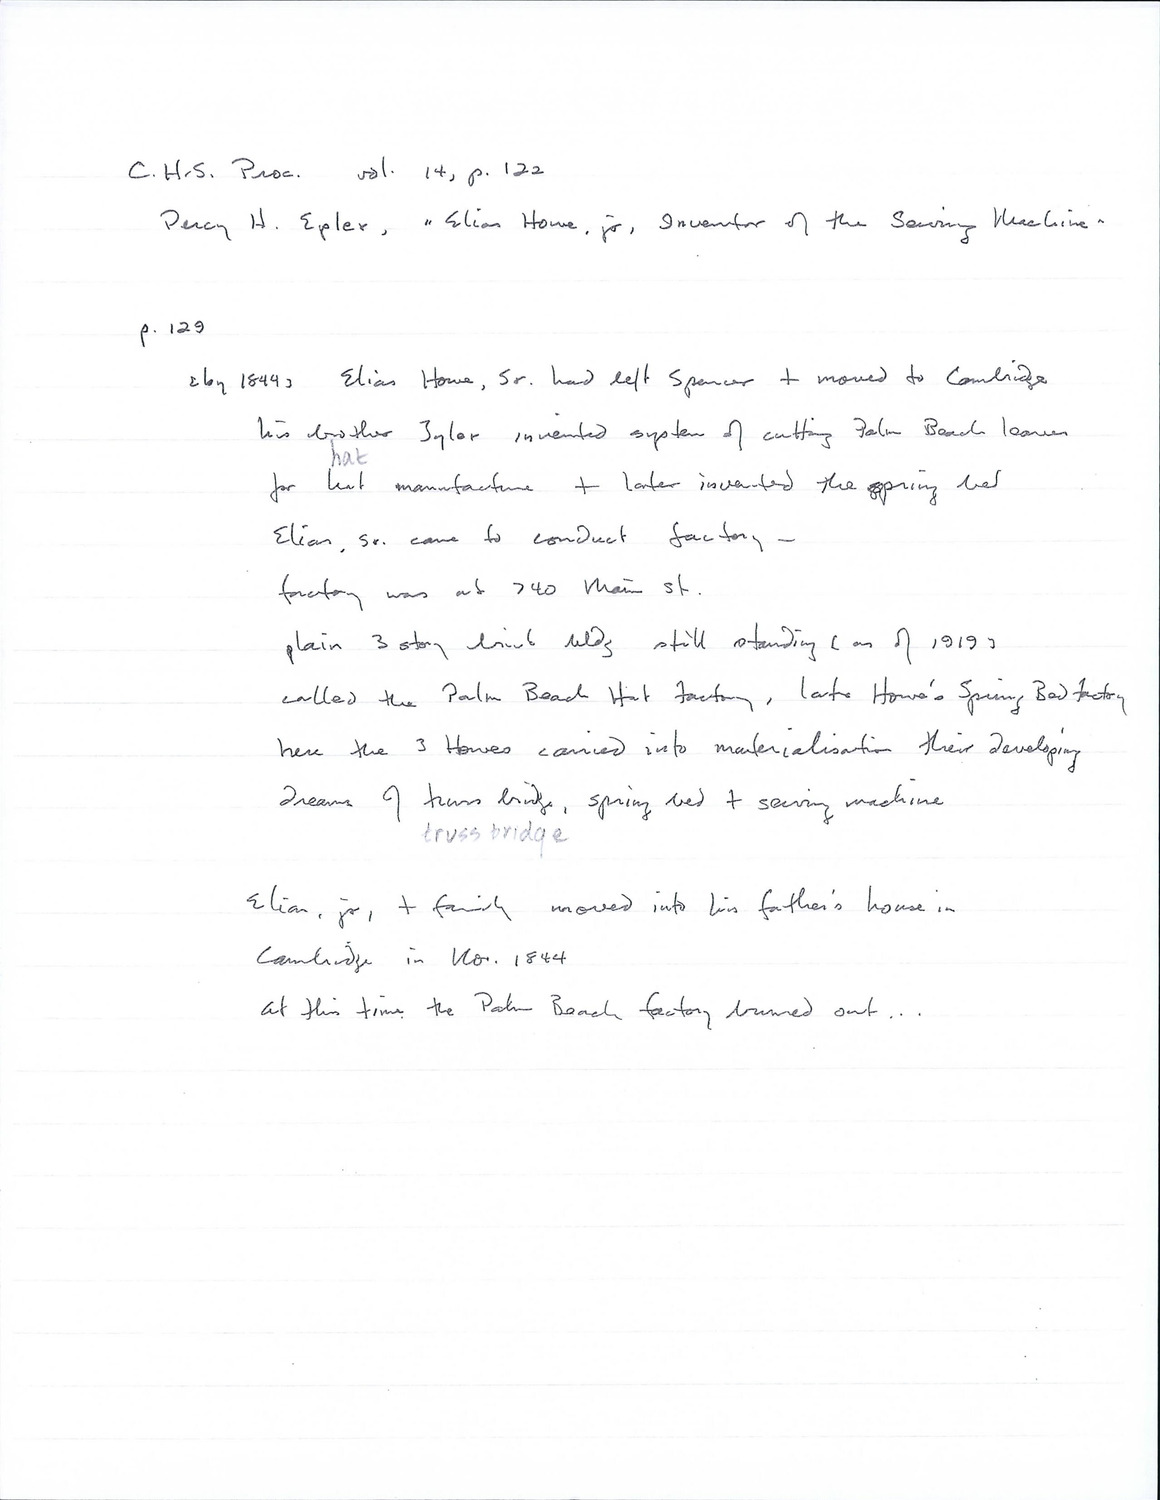 C.H.S. Proc. vol. 14, p. 122
Percy H. Epler, "Elias Howe, jr, Inventor of the Sewing Machine"
p. 129
[by 1844] Elias Howe, Sr. had left Spencer + moved to Cambridge
his brother Tyler invented system of cutting Palm Beach leaves
hat
for hat manufacture + later invented the spring bed
Elias, Sr. came to conduct factory –
factory was at 740 Main St.
plain 3 story brick bldg still standing [as of 1919]
called the Palm Beach Hat Factory, late Howe's Spring Bed factory
here the 3 Howes carried into materialisation their developing
dreams of truss bridge, spring bed + sewing machine
truss bridge
Elias, jr, + family moved into his father's house in
Cambridge in Nov. 1844
at this time the Palm Beach factory burned out...